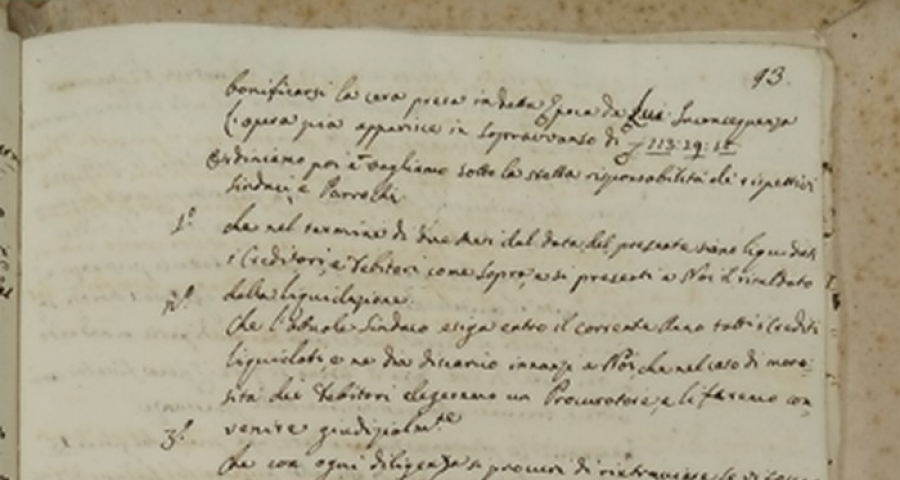 93.
bonificarsi la cera presa in detta Epoca da Lui. In conseguenza
l'opera pia apparisce in sopravvanzo di 113:29:
Ordiniamo poi e vogliamo sotto la stessa risponsabilità de' rispettivi
Sindaci e Parrochi
1.º che nel termine di due mesi dal data del presente siano liquidati
i Creditori, e Debitori come sopra, e si presenti a Noi il risultato
della liquidazione.
2.º
Che l'attuale Sindaco esiga entro il corrente Anno tutti i Crediti
liquidati e ne dia discarico innanzi a Noi, che nel caso di moro-
sità dei Debitori elegeremo un Procuratore, e li faremo con
3.º venire giudizialmte
Che con ogni diligenza si procuri di rintracciare le